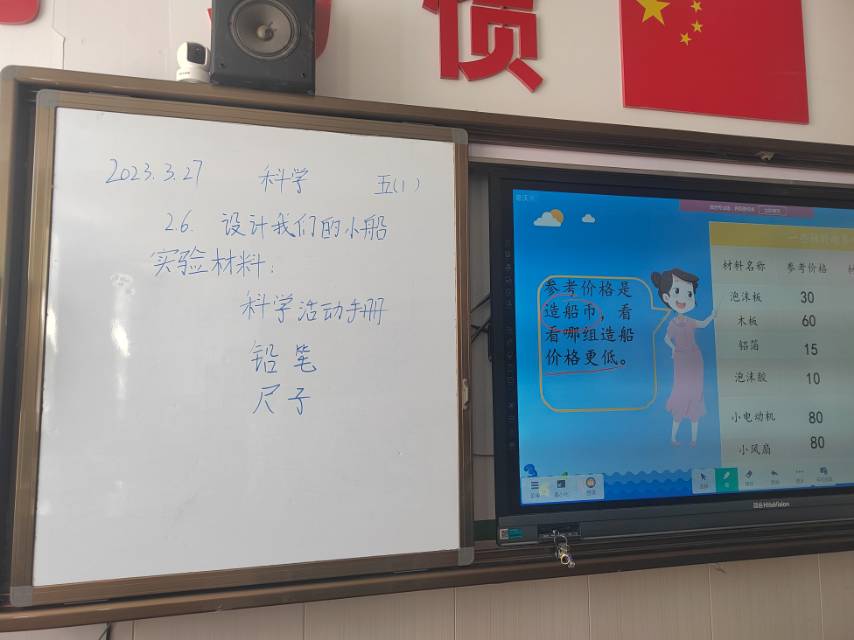 惯
2023.3.27 科学 五(1)
2.6. 设计我们的小船
实验材料:
科学活动手册
铅笔
尺子
参考价格是
造船币，看
看哪组造船
价格更低。
材料名称 参考价格
泡沫板 30
木板 60
铝箔 15
泡沫胶 10
小电动机 80
小风扇 80
HiteVision